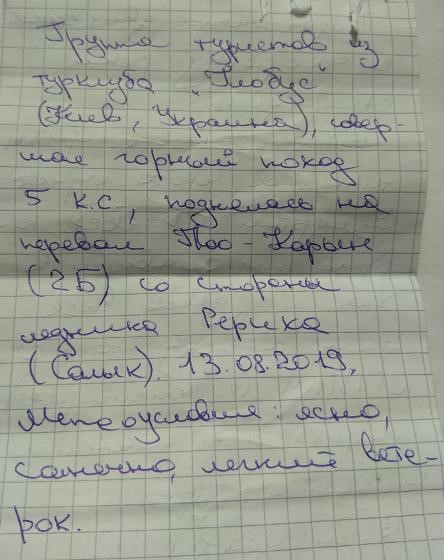 Группа туристов из
турклуба "Глобус"
(Киев, Украина), совер-
шая горный поход
5 к.с., поднялась на
перевал Тоо-Карын
(2Б) со стороны
ледника Рериха
(Салык). 13.08.2019,
Метеоусловия: ясно,
солнечно, легкий вете-
рок.